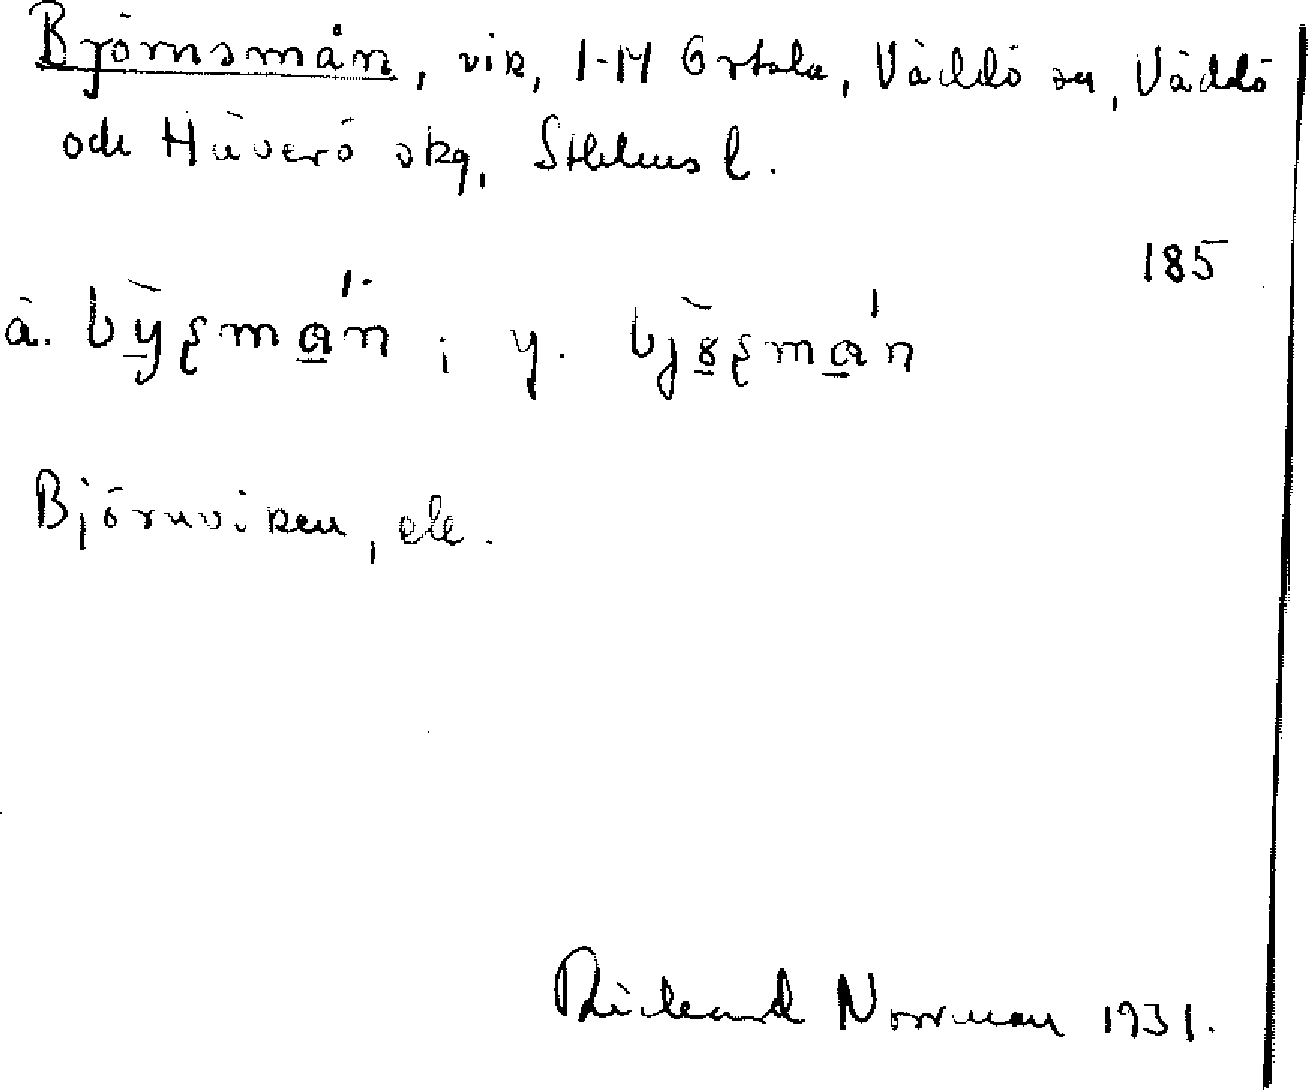 Björnsmån, vik, 1-14 Ortala, Väddö sn, Väddö
och Häverö skg, Sthlms l.
185
ä. by̱ʂma̱n ; y. bjɵ̱ʂma̱n
Björnviken, ek.
Rickard Norrman 1931.